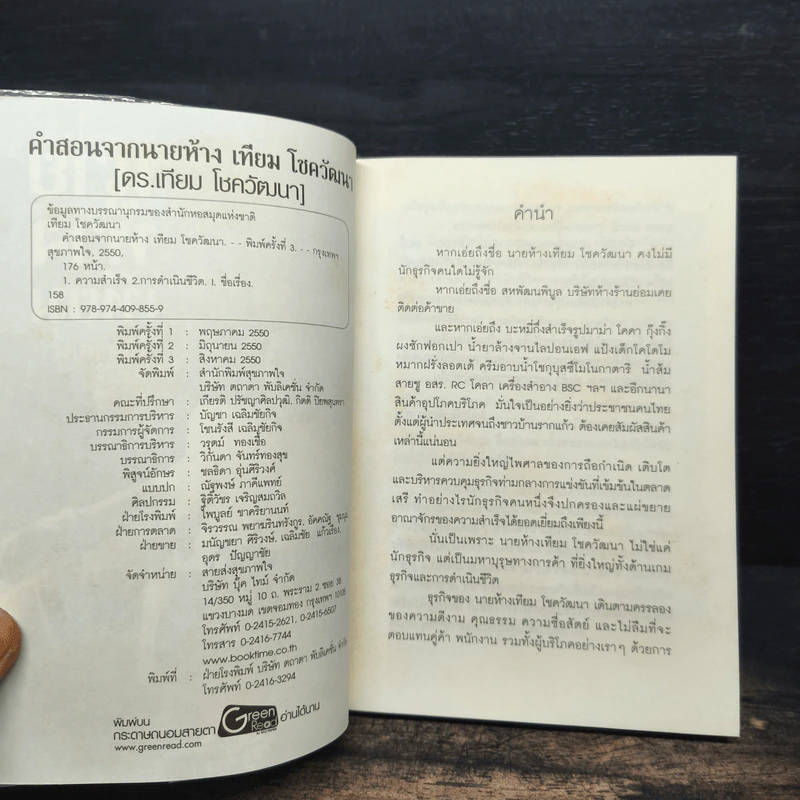 คำสอนจากนายห้าง เทียม โชควัฒนา
[ดร.เทียม โชควัฒนา]
ข้อมูลทางบรรณานุกรมของสำนักหอสมุดแห่งชาติ
เทียม โชควัฒนา
คำสอนจากนายห้าง เทียม โชควัฒนา. - - พิมพ์ครั้งที่ 3. - - กรุงเทพฯ
สุขภาพใจ, 2550,
176 หน้า.
1. ความสำเร็จ 2.การดำเนินชีวิต. I. ชื่อเรื่อง.
158
ISBN : 978-974-409-855-9
พิมพ์ครั้งที่ 1 : พฤษภาคม 2550
พิมพ์ครั้งที่ 2 : มิถุนายน 2550
พิมพ์ครั้งที่ 3 : สิงหาคม 2550
จัดพิมพ์ : สำนักพิมพ์สุขภาพใจ
บริษัท ตถาตา พับลิเคชั่น จำกัด
คณะที่ปรึกษา : เกียรติ ปรัชญาศิลปวุฒิ, กิตติ ปิยพสุนทรา
ประธานกรรมการบริหาร : บัญชา เฉลิมชัยกิจ
กรรมการผู้จัดการ : โชนรังสี เฉลิมชัยกิจ
บรรณาธิการบริหาร : วรุตม์ ทองเชื้อ
บรรณาธิการ : วิกันดา จันทร์ทองสุข
พิสูจน์อักษร : ชลธิดา อุ่นศิริวงศ์
แบบปก : ณัฐพงษ์ ภาคีแพทย์
ศิลปกรรม : ฐิติวัชร เจริญสมถวิล
ฝ่ายโรงพิมพ์ : ไพบูลย์ ชาคริยานนท์
ฝ่ายการตลาด : จิรวรรณ พยาฆรินทรังกูร, อัคคณัฐ
ฝ่ายขาย : มนัญชยา ศิริวงษ์, เฉลิมชัย แก้วเรือง,
อุดร ปัญญาชัย
จัดจำหน่าย : สายส่งสุขภาพใจ
บริษัท บุ๊ค ไทม์ จำกัด
14/350 หมู่ 10 ถ. พระราม 2 ซอย 38
แขวงบางมด เขตจอมทอง กรุงเทพฯ 10105
โทรศัพท์ 0-2415-2621, 0-2415-6507
โทรสาร 0-2416-7744
www.booktime.co.th
พิมพ์ที่ : ฝ่ายโรงพิมพ์ บริษัท ตถาตา พับลิเคชั่น จำกัด
โทรศัพท์ 0-2416-3294
พิมพ์บน
กระดาษถนอมสายตา Green Read อ่านได้นาน
www.greenread.com
คำนำ
หากเอ่ยถึงชื่อ นายห้างเทียม โชควัฒนา คงไม่มี
นักธุรกิจคนใดไม่รู้จัก
หากเอ่ยถึงชื่อ สหพัฒนพิบูล บริษัทห้างร้านย่อมเคย
ติดต่อค้าขาย
และหากเอ่ยถึง บะหมี่กึ่งสำเร็จรูปมาม่า โคคา กุ๊งกิ๊ง
ผงซักฟอกเปา น้ำยาล้างจานไลปอนเอฟ แป้งเด็กโคโดโม
หมากฝรั่งลอตเต้ ครีมอาบน้ำโชกุบุสซึโมโนกาตาริ น้ำส้ม
สายชู อสร. RC โคลา เครื่องสำอาง BSC ฯลฯ และอีกนานา
สินค้าอุปโภคบริโภค มั่นใจเป็นอย่างยิ่งว่าประชาชนคนไทย
ตั้งแต่ผู้นำประเทศจนถึงชาวบ้านรากแก้ว ต้องเคยสัมผัสสินค้า
เหล่านี้แน่นอน
แต่ความยิ่งใหญ่ไพศาลของการถือกำเนิด เติบโต
และบริหารควบคุมธุรกิจท่ามกลางการแข่งขันที่เข้มข้นในตลาด
เสรี ทำอย่างไรนักธุรกิจคนหนึ่งจึงปกครองและแผ่ขยาย
อาณาจักรของความสำเร็จได้ยอดเยี่ยมถึงเพียงนี้
นั่นเป็นเพราะ นายห้างเทียม โชควัฒนา ไม่ใช่แค่
นักธุรกิจ แต่เป็นมหาบุรุษทางการค้า ที่ยิ่งใหญ่ทั้งด้านเกม
ธุรกิจและการดำเนินชีวิต
ธุรกิจของ นายห้างเทียม โชควัฒนา เดินตามครรลอง
ของความดีงาม คุณธรรม ความซื่อสัตย์ และไม่ลืมที่จะ
ตอบแทนคู่ค้า พนักงาน รวมทั้งผู้บริโภคอย่างเราๆ ด้วยการ